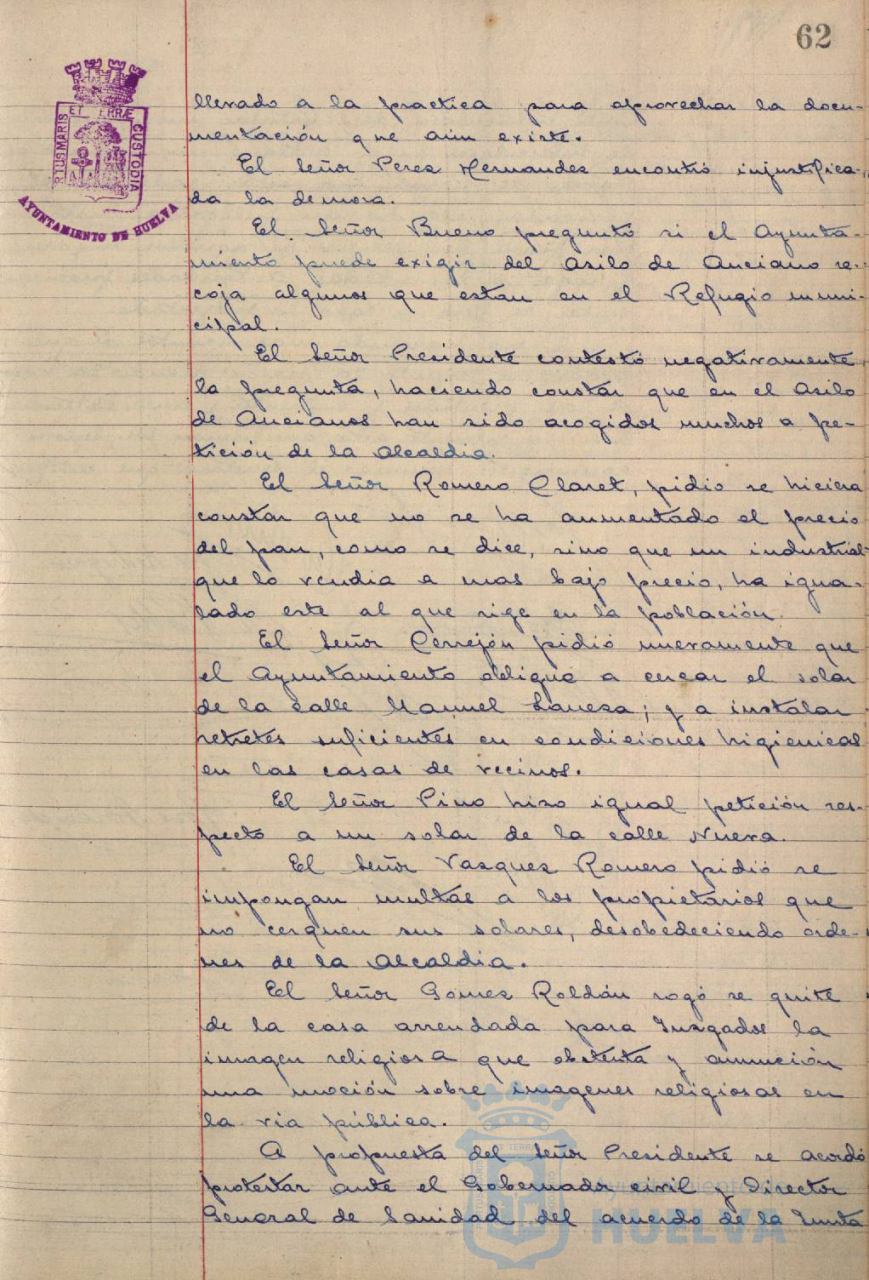 62
PORTUS MARIS ET TERRÆ CUSTODIA
AYUNTAMIENTO DE HUELVA
llevado a la practica para aprovechar la docu-
mentación que aún existe.
El Señor Perez Hernandez encontró injustifica-
da la demora.
El Señor Bueno preguntó si el Ayunta-
miento puede exigir del Asilo de Anciano re-
coja algunos que estan en el Refugio muni-
cipal.
El Señor Presidente contestó negativamente
la pregunta, haciendo constar que en el Asilo
de Ancianos han sido acogidos muchos a pe-
tición de la Alcaldia.
El Señor Romero Claret, pidió se hiciera
constar que no se ha aumentado el precio
del pan, como se dice, sino que un industrial
que lo vendia a mas bajo precio, ha igua-
lado este al que rige en la población.
El Señor Cerrejón pidió nuevamente que
el Ayuntamiento obligue a cercar el solar
de la calle Manuel; y a instalar
retretes suficientes en condiciones higienicas
en las casas de vecinos.
El Señor Pino hizo igual petición res-
pecto a un solar de la calle Nueva.
El Señor Vazquez Romero pidió se
impongan multas a los propietarios que
no cerquen sus solares, desobedeciendo orde-
nes de la Alcaldia.
El Señor Gomez Roldán rogó se quite
de la casa arrendada para Juzgados la
imagen religiosa que obstenta y anunción
una moción sobre imagenes religiosas en
la via pública.
A propuesta del Señor Presidente se acordó
protestar ante el Gobernador civil y Director
General de Sanidad del acuerdo de la Junta
Ayuntamiento de
HUELVA